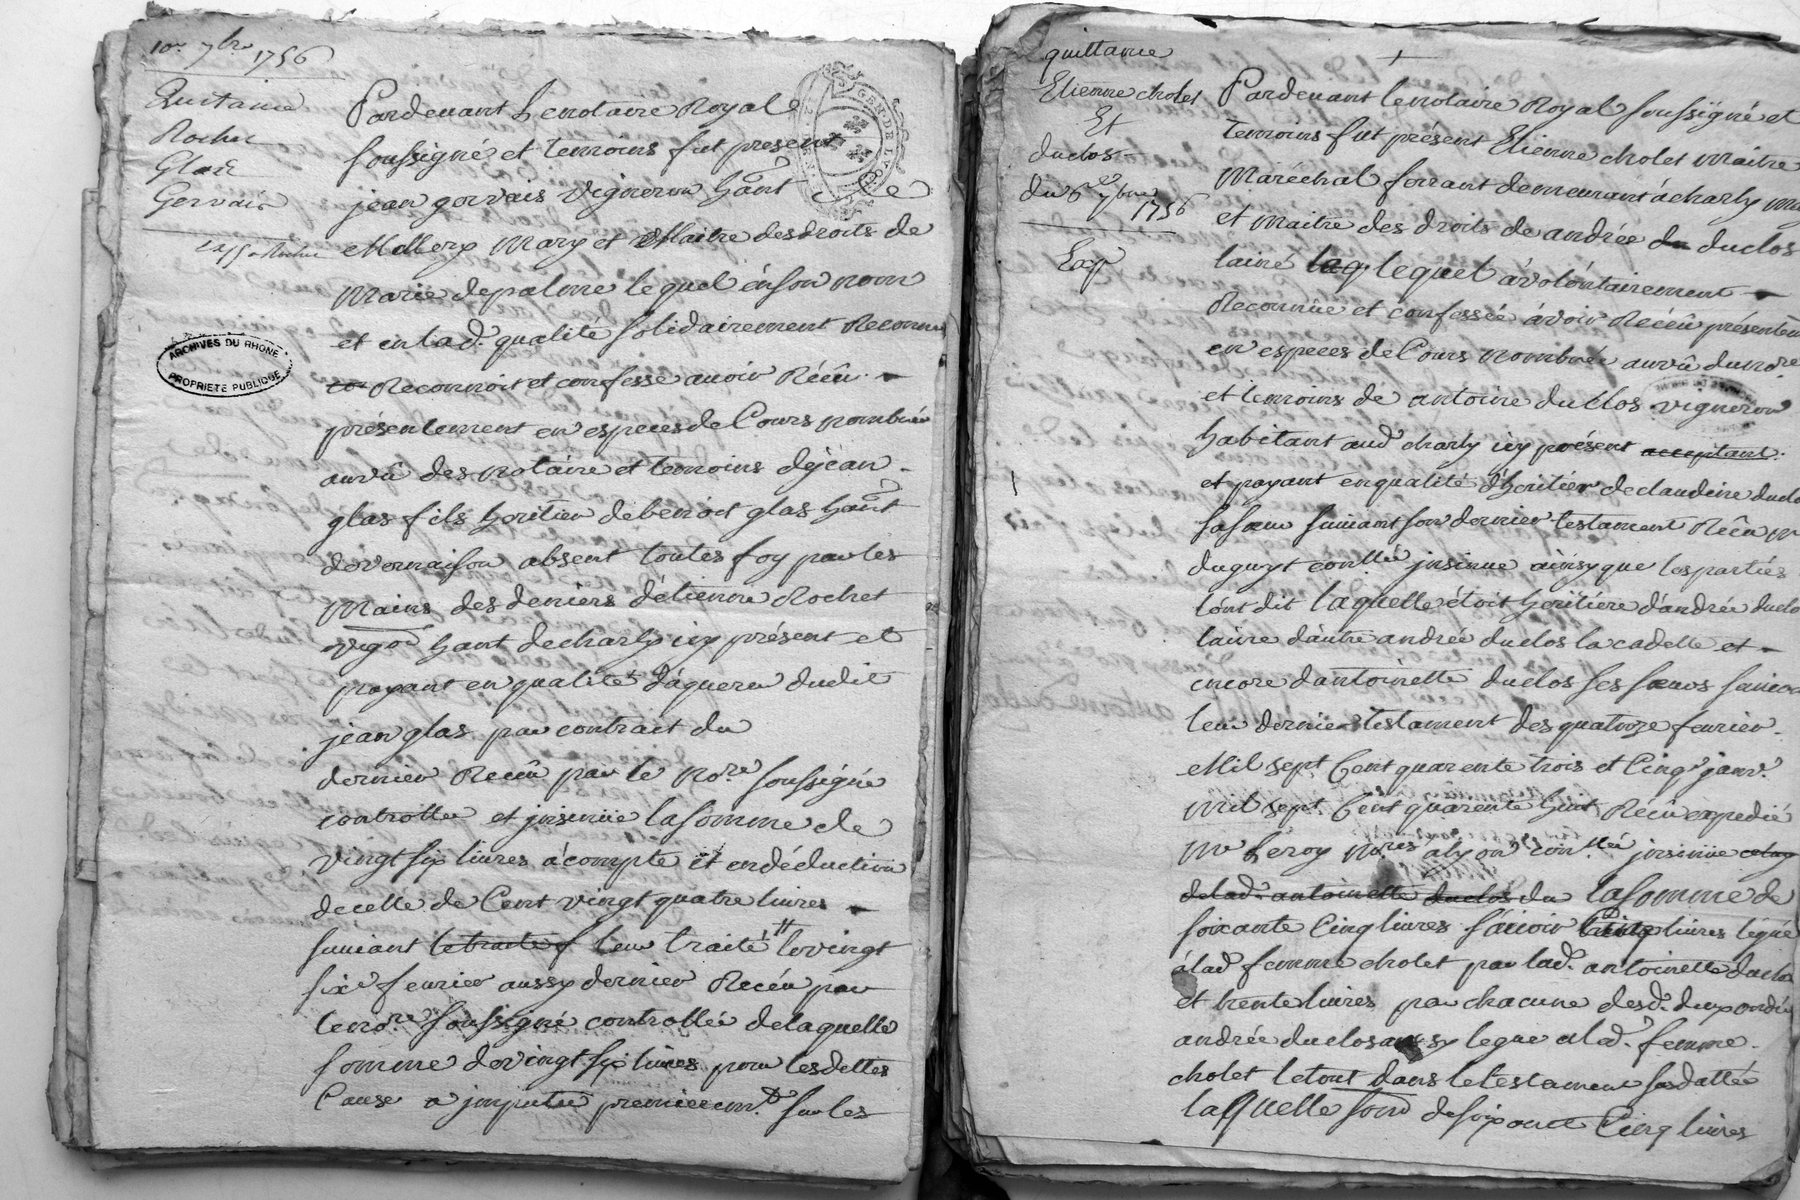 10e 7bre 1756
Quitance
Rochet
Glas
Gervais
Pardevant Le notaire Royal
soussigné et temoins fut present
jean gervais vigneron hant de
Millery Mary et Maitre des droits de
Marie depalme lequel én son nom
et en lad. qualité solidairement Reconnu
Reconnoit et confesse avoir Réçû
présentement en especes de Cours nombrée
auvû des notaire et temoins dejéan
glas fils heritier de benoit glas hant
de vernaison absent toutes foy par les
mains des deniers d'étienne Rochet
vigon hant de charly icy présent et
payant en qualité d'áquereur dudit
jean glas par contrait du
dernier Recû par le Nore soussigné
controllee et jnsinüe la somme de
vingt six livres ácompte et en déduction
decelle de Cent vingt quatre livres
suivant le traité leur traité le vingt
six fevrier aussy dernier Recéu par
le nore soussigné controllée de laquelle
somme de vingt six livres pour les dettes
Cause a jmputer premieremt sur les
ARCHIVES DU RHONE
PROPRIETE PUBLIQUE
GEN. DE LYON
quittance
Etienne cholet
Et
duclos
du 6e 7bre 1756
Exp
Pardevant le notaire Royal soussigné et
temoins fut présent Etienne cholet Maitre
Maréchal ferrant demeurant á charly
et Maitre des droits de andrée duclos
lainé lequel á volontairement
Reconnüe et confessée ávoir Récéü présentem
en especes de Cours nombrée auvû du nore
et temoins de antoine duclos vigneron
habitant aud charly icy présent acceptant
et payant en qualité d'héritier de claudine duclo
sa sœur suivant son dernier testament Recû
duguyt conllé jnsinue áinsy que les parties
lónt dit laquelle étoit héritiére d'andrée duclo
lainé d'áutre andrée duclos la cadette et
encore d'antoinette duclos ses sœurs suivan
leur dernier testament des quatorze fevrier
Mil sept Cent quarente trois et Cinq janv.
Mil sept Cent quarente huit Récû expedié
Me Leroy nores á lyon conllé jnsinüe
de lad. antoinette duclos du la somme de
soixante Cinq livres sáuoir livres légué
á lad femme cholet par lad. antoinette duclo
et trente livres par chacune desd. deux
andrée duclos aussy legue a lad. femme
cholet le tout dans le testament susdattée
laquelle some de soixante Cinq livres